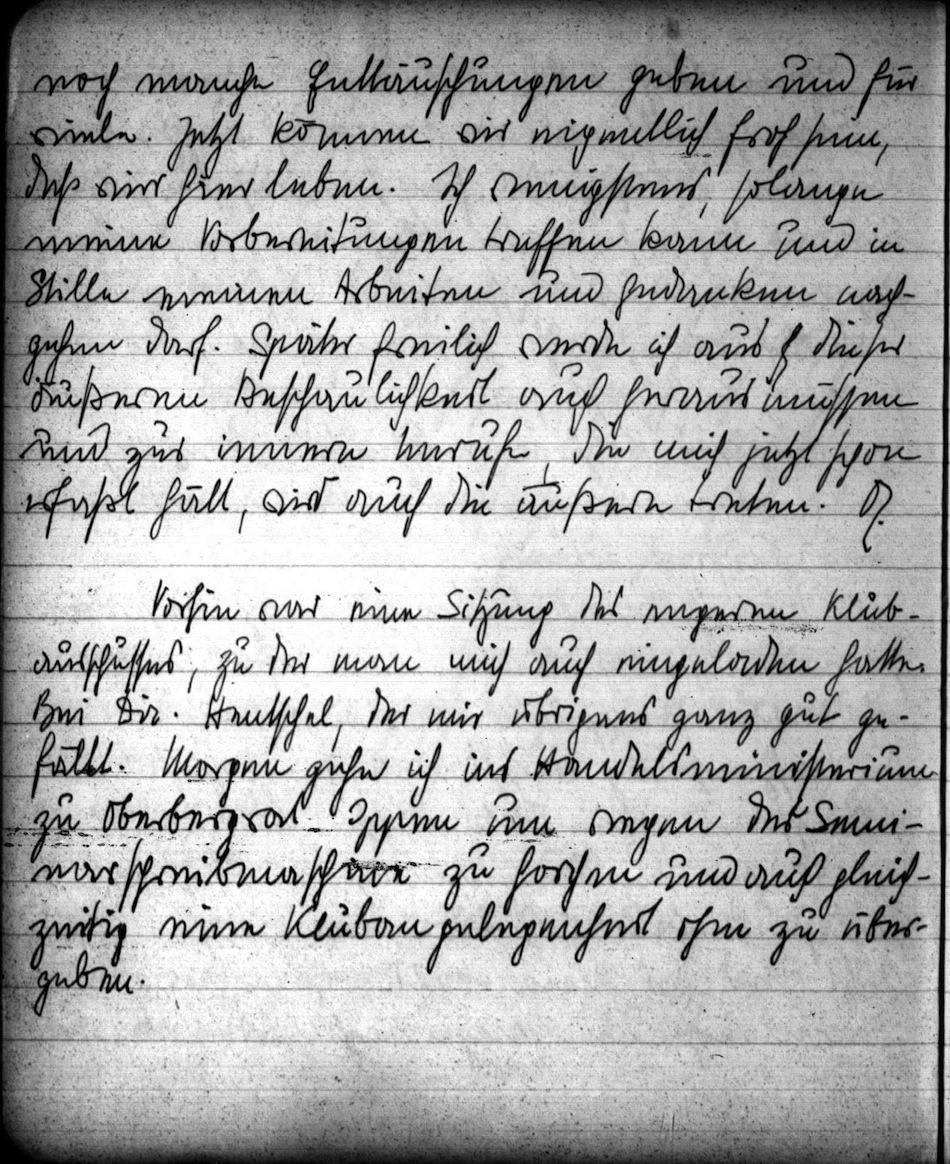 noch manche Enttäuschungen geben und für
viele. Jetzt können wir eigentlich froh sein,
daß wir hier leben. Ich wenigstens, solange
meine Vorbereitungen treffen kann und in
Stille meinen Arbeiten und Gedanken nach-
gehen darf. Später freilich werde ich aus dieser
äußeren Beschaulichkeit auch heraus müssen
und zur innern Unruhe, die mich jetzt schon
erfaßt hält, wird auch die äußere treten.
Vorhin war eine Sitzung des engeren Klub-
ausschusses, zu der man mich auch eingeladen hatte.
Bei Dir. Hentschel, der mir übrigens ganz gut ge-
fällt. Morgen gehe ich ins Handelsministerium
zu Oberbergrat Ippen um wegen der Semi-
narschreibmaschine zu horchen und auch gleich-
zeitig eine Klubangelegenheit ihm zu über-
geben.